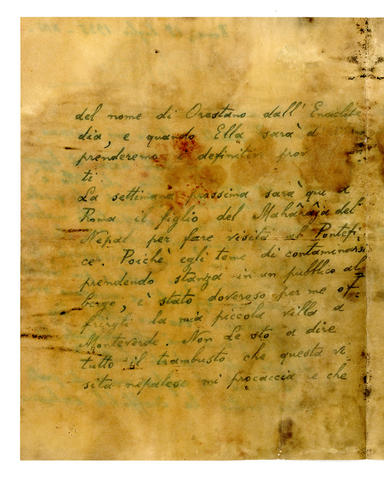 del nome di Orestano dall'Enciclope
dia, e quando Ella sarà a
prenderemo definitivi prov
ti.
La settimana prossima sarà qui a
Roma il figlio del Maharaja del
Nepal per fare visita al Pontefi
ce. Poichè egli teme di contaminarsi
prendendo stanza in un pubblico al
bergo, è stato doveroso per me of
frirgli la mia piccola villa a
Monteverde. Non Le sto a dire
tutto il trambusto che questa vi
sita nepalese mi procaccia e che